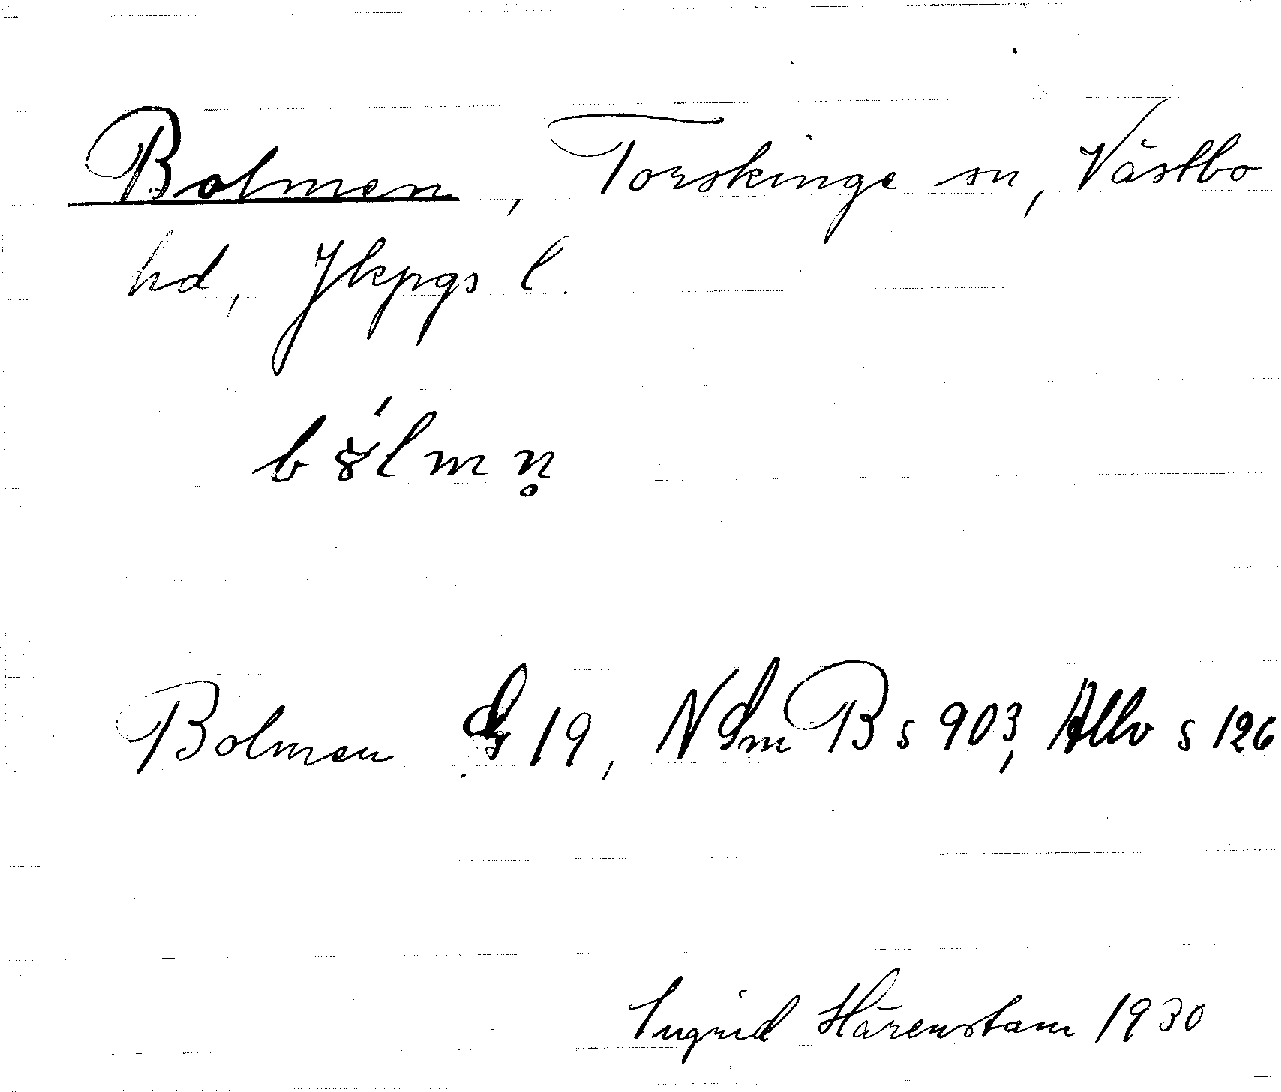 Bolmen, Torskinge sn, Västbo
hd, Jkpgs l.
bólmn̥
Bolmen G 19, NSm B s 903, Allv s 126
Ingrid Härenstam 1930